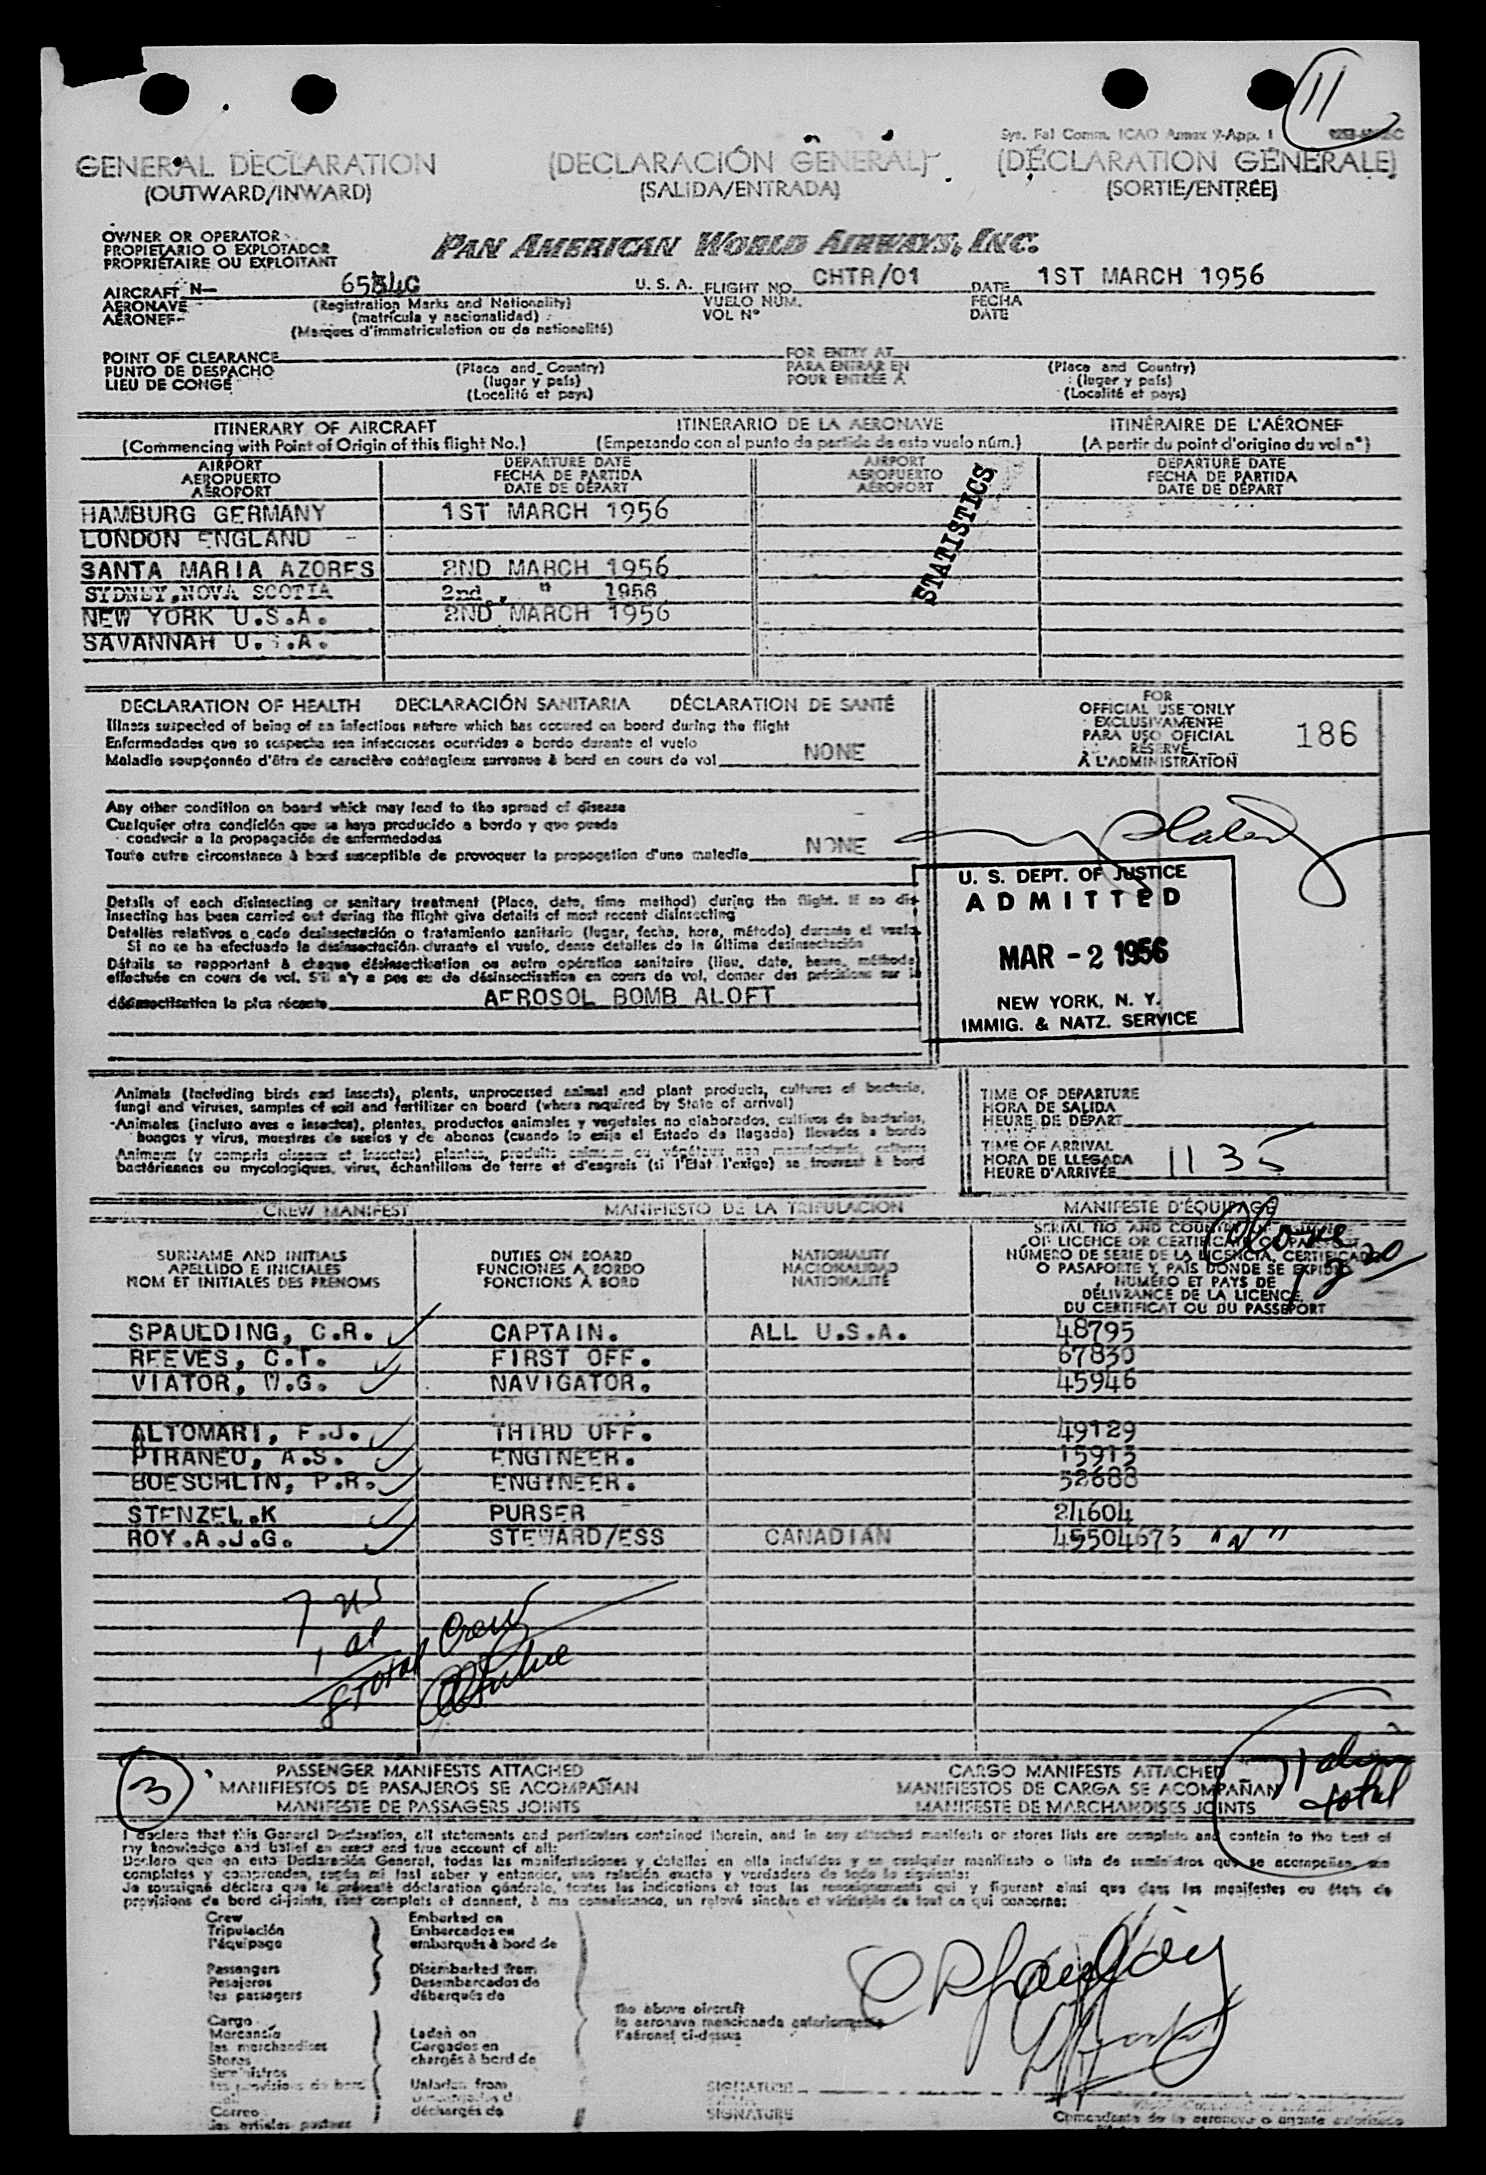 11
Sys. Fal Comm. ICAO Annex 9-App. 1
GENERAL DECLARATION (DECLARACIÓN GENERAL) (DÉCLARATION GÉNÉRALE)
(OUTWARD/INWARD) (SALIDA/ENTRADA) (SORTIE/ENTRÉE)
OWNER OR OPERATOR
PROPIETARIO O EXPLOTADOR
PROPRIÉTAIRE OU EXPLOITANT
PAN AMERICAN WORLD AIRWAYS, INC.
AIRCRAFT N- 6534C U. S. A. FLIGHT NO. CHTR/01 DATE 1ST MARCH 1956
AERONAVE (Registration Marks and Nationality) VUELO NÚM. FECHA
AÉRONEF (matrícula y nacionalidad) VOL Nº DATE
(Marques d'immatriculation ou de nationalité)
POINT OF CLEARANCE FOR ENTRY AT
PUNTO DE DESPACHO (Place and Country) PARA ENTRAR EN (Place and Country)
LIEU DE CONGÉ (lugar y país) POUR ENTRÉE À (lugar y país)
(Localité et pays) (Localité et pays)
ITINERARY OF AIRCRAFT ITINERARIO DE LA AERONAVE ITINÉRAIRE DE L'AÉRONEF
(Commencing with Point of Origin of this flight No.) (Empezando con el punto de partida de este vuelo núm.) (A partir du point d'origine du vol nº)
AIRPORT DEPARTURE DATE AIRPORT DEPARTURE DATE
AEROPUERTO FECHA DE PARTIDA AEROPUERTO FECHA DE PARTIDA
AÉROPORT DATE DE DÉPART AÉROPORT DATE DE DÉPART
HAMBURG GERMANY 1ST MARCH 1956
LONDON ENGLAND
SANTA MARIA AZORES 2ND MARCH 1956
SYDNEY,NOVA SCOTIA 2nd " 1956
NEW YORK U.S.A. 2ND MARCH 1956
SAVANNAH U.S.A.
STATISTICS
DECLARATION OF HEALTH DECLARACIÓN SANITARIA DÉCLARATION DE SANTÉ
Illness suspected of being of an infectious nature which has occured on board during the flight
Enfermedades que se sospecha sean infecciosas ocurridas a bordo durante el vuelo
Maladie soupçonnée d'être de caractère contagieux survenue à bord en cours de vol NONE
Any other condition on board which may lead to the spread of disease
Cualquier otra condición que se haya producido a bordo y que pueda
conducir a la propagación de enfermedades
Toute autre circonstance à bord susceptible de provoquer la propagation d'une maladie NONE
Details of each disinsecting or sanitary treatment (Place, date, time method) during the flight. If no dis-
insecting has been carried out during the flight give details of most recent disinsecting
Detalles relativos a cada desinsectación o tratamiento sanitario (lugar, fecha, hora, método) durante el vuelo.
Si no se ha efectuado la desinsectación durante el vuelo, dense detalles de la última desinsectación
Détails se rapportant à chaque désinsectisation ou autre opération sanitaire (lieu, date, heure, méthode)
effectuée en cours de vol. S'il n'y a pas eu de désinsectisation en cours de vol, donner des précisions sur la
désinsectisation la plus récente AEROSOL BOMB ALOFT
FOR
OFFICIAL USE ONLY
EXCLUSIVAMENTE
PARA USO OFICIAL
RÉSERVÉ
À L'ADMINISTRATION
186
U. S. DEPT. OF JUSTICE
ADMITTED
MAR - 2 1956
NEW YORK, N. Y.
IMMIG. & NATZ. SERVICE
Animals (including birds and insects), plants, unprocessed animal and plant products, cultures of bacteria,
fungi and viruses, samples of soil and fertilizer on board (where required by State of arrival)
Animales (incluso aves e insectos), plantas, productos animales y vegetales no elaborados, cultivos de bacterias,
hongos y virus, muestras de suelos y de abonos (cuando lo exija el Estado de llegada) llevados a bordo
Animaux (y compris oiseaux et insectes) plantes, produits animaux ou végétaux non manufacturés, cultures
bactériennes ou mycologiques, virus, échantillons de terre et d'engrais (si l'État l'exige) se trouvant à bord
TIME OF DEPARTURE
HORA DE SALIDA
HEURE DE DÉPART
TIME OF ARRIVAL
HORA DE LLEGADA
HEURE D'ARRIVÉE 1135
CREW MANIFEST MANIFIESTO DE LA TRIPULACION MANIFESTE D'ÉQUIPAGE
SURNAME AND INITIALS DUTIES ON BOARD NATIONALITY
APELLIDO E INICIALES FUNCIONES A BORDO NACIONALIDAD
NOM ET INITIALES DES PRÉNOMS FONCTIONS À BORD NATIONALITÉ
NÚMERO DE SERIE DE LA LICENCIA, CERTIFICADO
O PASAPORTE Y PAÍS DONDE SE EXPIDIÓ
NUMÉRO ET PAYS DE
DÉLIVRANCE DE LA LICENCE,
DU CERTIFICAT OU DU PASSEPORT
SPAULDING, C.R. CAPTAIN. ALL U.S.A. 48795
REEVES, C.T. FIRST OFF. 67830
VIATOR, W.G. NAVIGATOR. 45946
ALTOMARI, F.J. THIRD OFF. 49129
PIRANEO, A.S. ENGINEER. 15915
BOESCHLIN, P.R. ENGINEER. 52688
STENZEL.K PURSER 24604
ROY.A.J.G. STEWARD/ESS CANADIAN 45504676 "N"
7 us
1 al
8 total crew
3
1 alien
total
PASSENGER MANIFESTS ATTACHED CARGO MANIFESTS ATTACHED
MANIFIESTOS DE PASAJEROS SE ACOMPAÑAN MANIFIESTOS DE CARGA SE ACOMPAÑAN
MANIFESTE DE PASSAGERS JOINTS MANIFESTE DE MARCHANDISES JOINTS
I declare that this General Declaration, all statements and particulars contained therein, and in any attached manifests or stores lists are complete and contain to the best of
my knowledge and belief an exact and true account of all:
Declaro que en esta Declaración General, todas las manifestaciones y detalles en ella incluidos y en cualquier manifiesto o lista de suministros que se acompañan, son
completos y comprenden, según mi leal saber y entender, una relación exacta y verdadera de todo lo siguiente:
Je soussigné déclare que la présente déclaration générale, toutes les indications et tous les renseignements qui y figurent ainsi que dans les manifestes ou états de
provisions de bord ci-joints, sont complets et donnent, à ma connaissance, un relevé sincère et véritable de tout ce qui concerne:
Crew Embarked on
Tripulación Embarcados en
l'équipage embarqués à bord de
Passengers Disembarked from
Pasajeros Desembarcados de
les passagers débarqués de
the above aircraft
la aeronave mencionada anteriormente
l'aéronef ci-dessus
Cargo
Mercancía Laden on
les marchandises Cargados en
Stores chargés à bord de
Suministros
les provisions de bord Unladen from
Correo déchargés de
les articles postaux
SIGNATURE
SIGNATURE
Comandante de la aeronave o agente autorizado